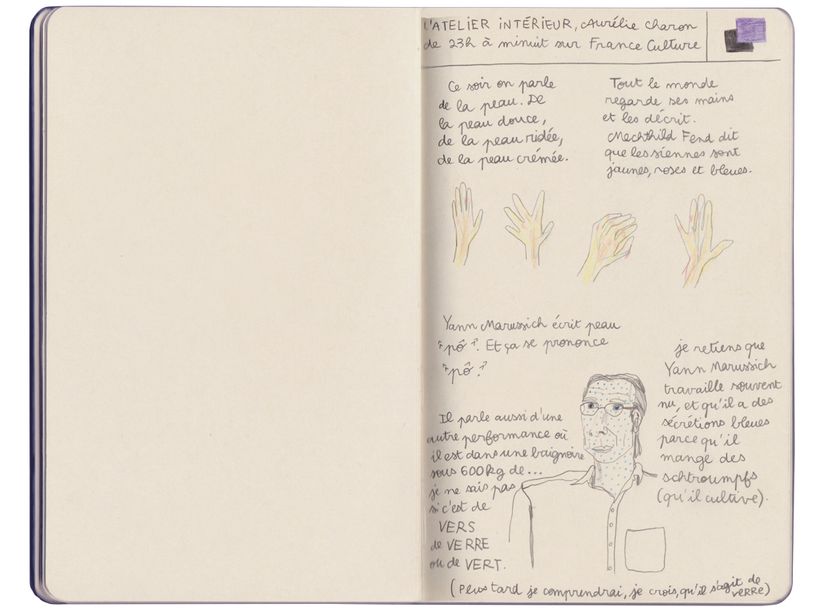 L'ATELIER INTÉRIEUR, Aurélie Charon
de 23h à minuit sur France Culture
Ce soir on parle
de la peau. De
la peau douce,
de la peau ridée,
de la peau crémée.
Tout le monde
regarde ses mains
et les décrit.
Mechthild Fend dit
que les siennes sont
jaunes, roses et bleues.
Yann Marussich écrit peau
"pô". Et ça se prononce
"pô".
je retiens que
Yann Marussich
travaille souvent
nu, et qu'il a des
sécrétions bleues
parce qu'il
mange des
schtroumpfs
(qu'il cultive).
Il parle aussi d'une
autre performance où
il est dans une baignoire
sous 600kg de...
je ne sais pas
si c'est de
VERS
de VERRE
ou de VERT.
(Plus tard je comprendrai, je crois, qu'il s'agit de
VERRE)